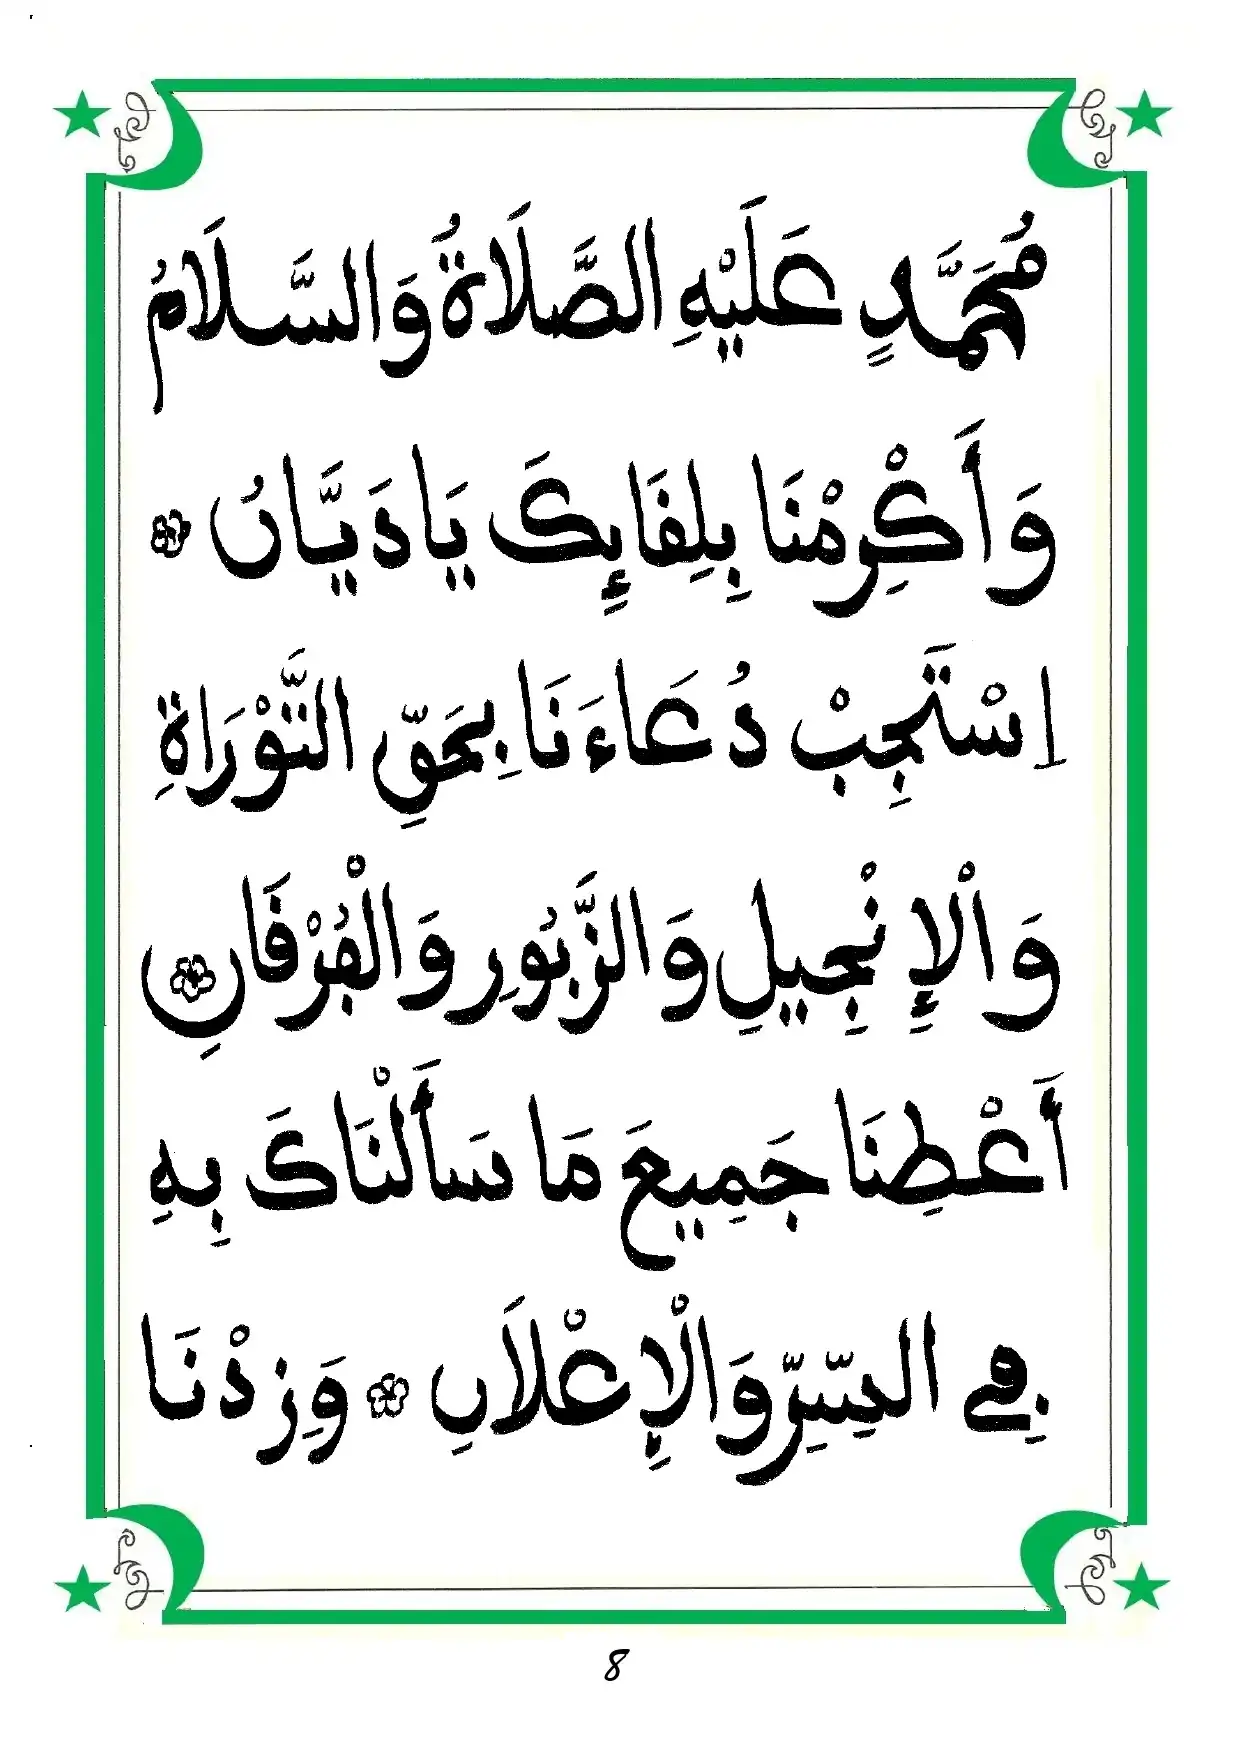 مُحَمَّدٍ عَلَيْهِ الصَّلَاةُ وَالسَّلَامُ
وَأَكْرِمْنَا بِلِقَايِٕكَ يَادَيَّانُ
اِسْتَجِبْ دُعَاءَنَا بِحَقِّ التَّوْرَاةِ
وَالْإِنْجِيلِ وَالزَّبُورِ وَالْفُرْقَانِ
أَعْطِنَا جَمِيعَ مَا سَأَلْنَاكَ بِهِ
فِي السِّرِّ وَالْإِعْلَانِ وَزِدْنَا
8